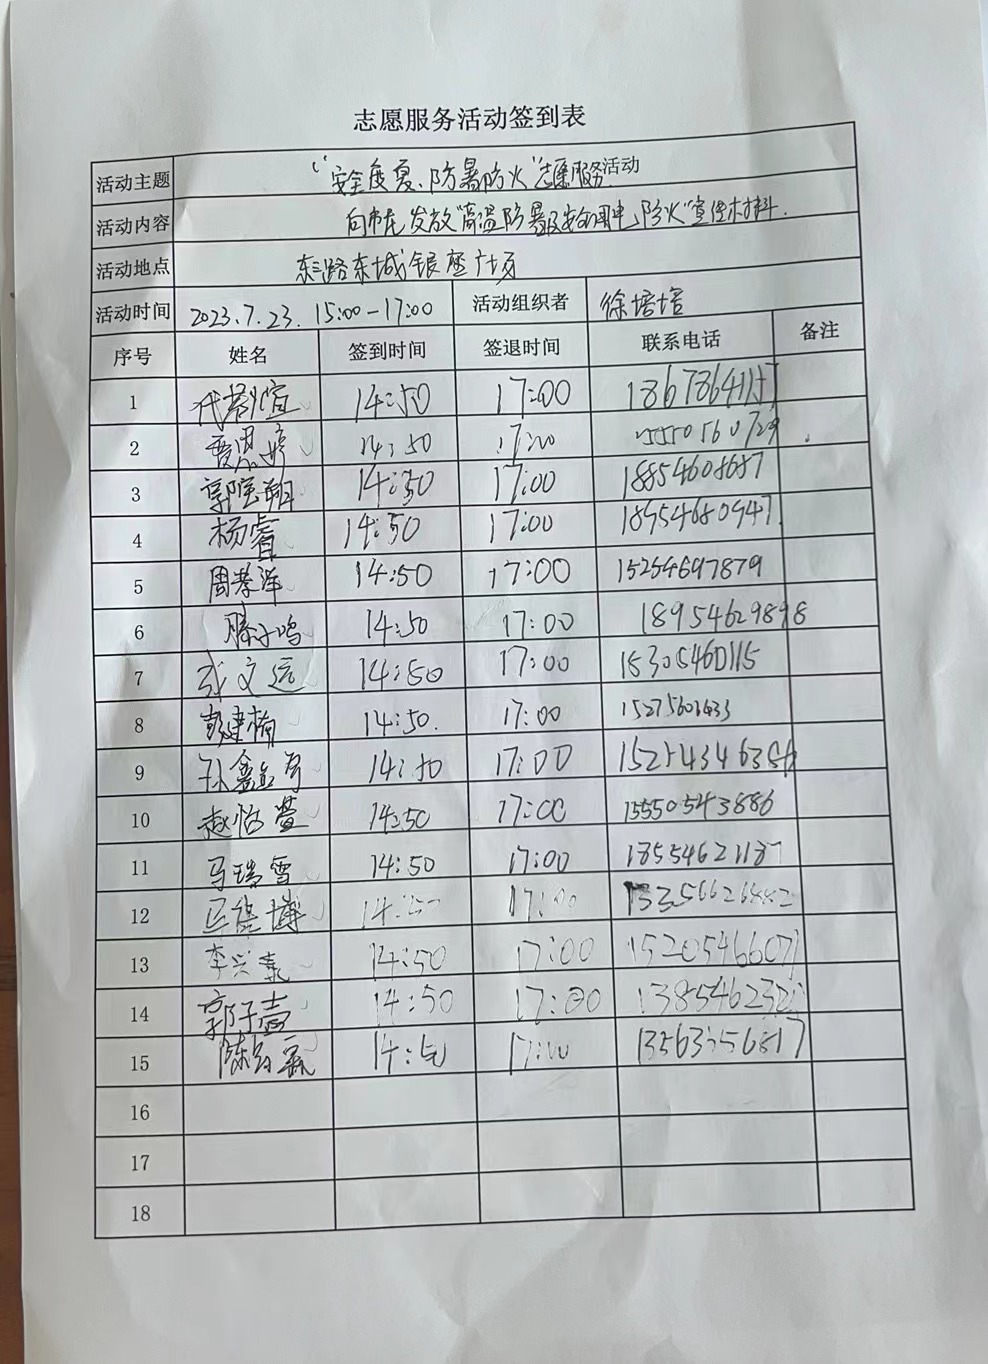 志愿服务活动签到表
活动主题 "安全度夏、防暑防火"志愿服务活动
活动内容 向市民发放"高温防暑及安全用电、防火"宣传材料.
活动地点 东三路东城银座广场
活动时间 2023.7.23. 15:00-17:00 活动组织者 徐培培
序号 姓名 签到时间 签退时间 联系电话 备注
1 14:50 17:00
2 14:50 17:00
3 14:50 17:00 18854608687
4 杨睿 14:50 17:00 18954680947
5 周孝洋 14:50 17:00 15254697879
6 滕子鸣 14:50 17:00 18954629898
7 张文远 14:50 17:00 15305460115
8 彭建楠 14:50. 17:00
9 14:50 17:00
10 赵怡萱 14:50 17:00 15550543886
11 马瑞雪 14:50 17:00
12 14:50 17:00
13 李兴熹 14:50 17:00
14 郭子壹 14:50 17:00
15 14:50 17:00
16
17
18